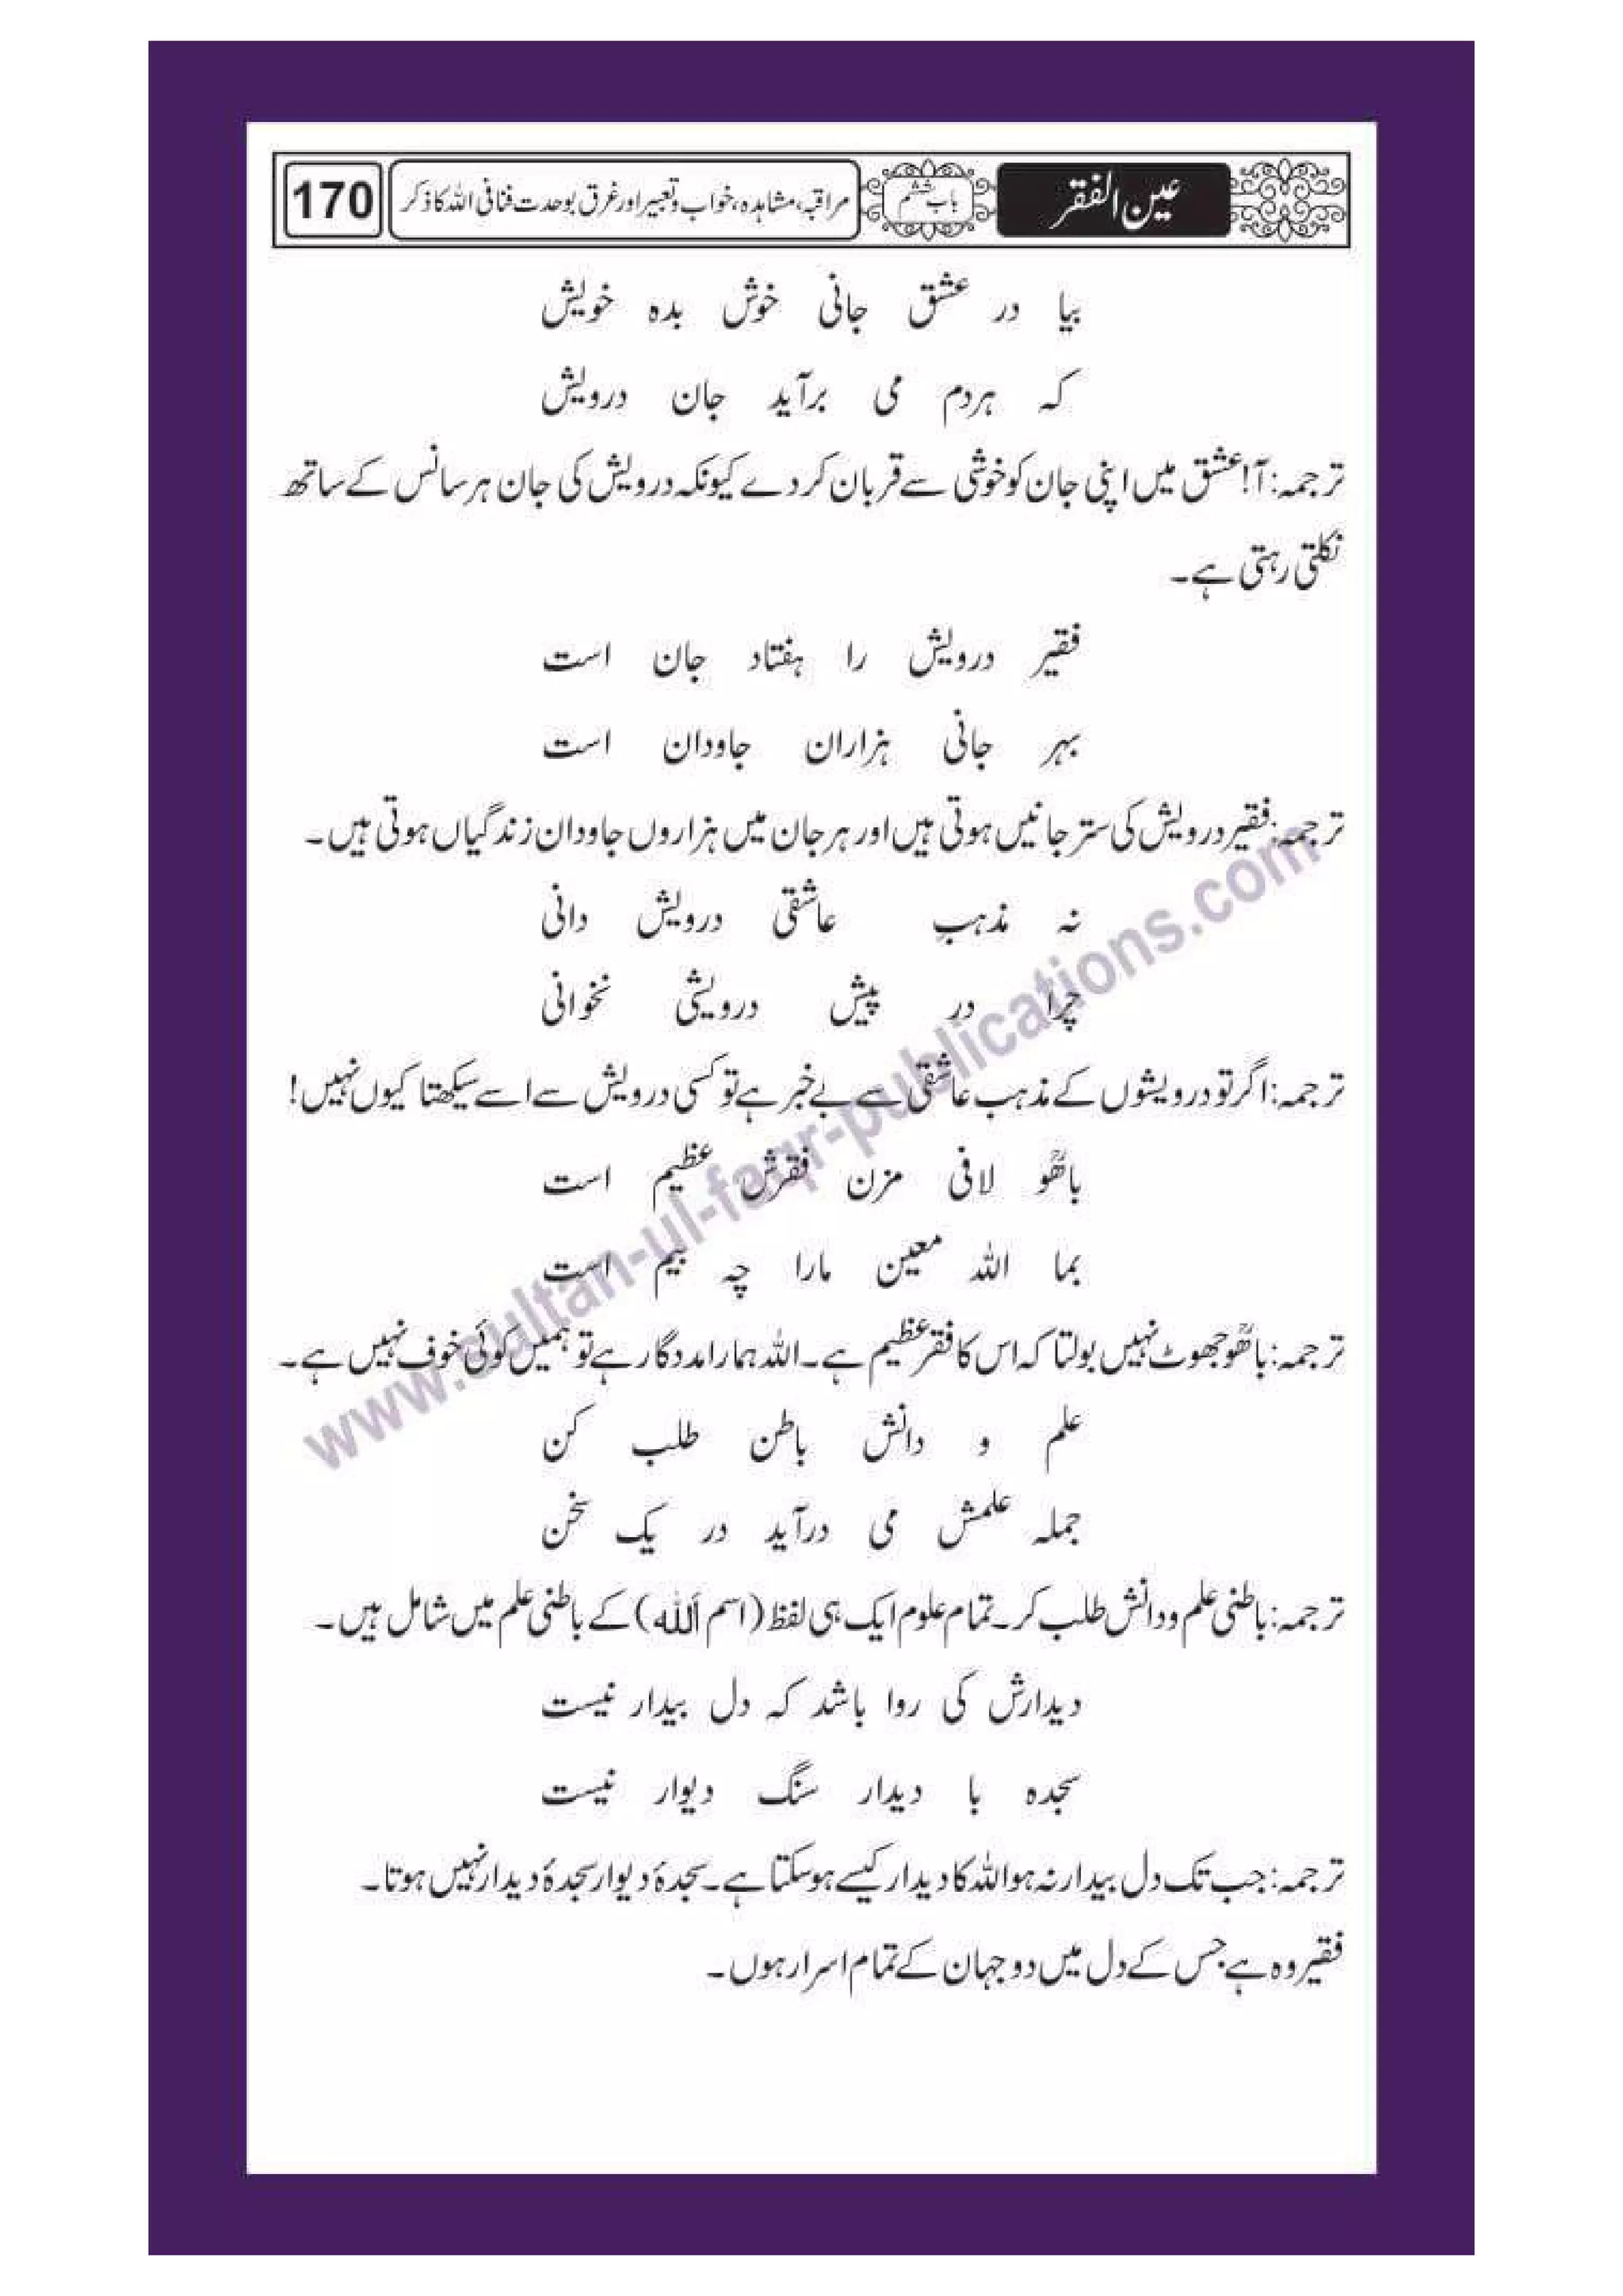 عین الفقر
باب ششم
مراقبہ، مشاہدہ، خواب و تعبیر اور غرق بوحدت فنا فی اللہ کا ذکر
170
بیا در عشق جانی خوش بدہ خویش
کہ ہردم می برآید جان درویش
ترجمہ: آ! عشق میں اپنی جان کو خوشی سے قربان کر دے کیونکہ درویش کی جان ہر سانس کے ساتھ
نکلتی رہتی ہے۔
فقیر درویش را ہفتاد جان است
بہر جانی ہزاران جاودان است
ترجمہ: فقیر درویش کی ستر جانیں ہوتی ہیں اور ہر جان میں ہزاروں جاودان زندگیاں ہوتی ہیں۔
نہ مذہبِ عاشقی درویش دانی
چرا در پیش درویشی نخوانی
ترجمہ: اگر تو درویشوں کے مذہب عاشقی سے بے خبر ہے تو کسی درویش سے اسے سیکھتا کیوں نہیں!
باھوؒ لافی مزن فقرش عظیم است
بما اللہ معین مارا چہ بیم است
ترجمہ: باھوؒ جھوٹ نہیں بولتا کہ اس کا فقر عظیم ہے۔ اللہ ہمارا مددگار ہے تو ہمیں کوئی خوف نہیں ہے۔
علم و دانش باطن طلب کن
جملہ علمش می درآید در یک سخن
ترجمہ: باطنی علم و دانش طلب کر۔ تمام علوم ایک ہی لفظ (اسم اَللہ) کے باطنی علم میں شامل ہیں۔
دیدارش کی روا باشد کہ دل بیدار نیست
سجدہ با دیدار سنگ دیوار نیست
ترجمہ: جب تک دل بیدار نہ ہو اللہ کا دیدار کیسے ہو سکتا ہے۔ سجدۂ دیوار سجدۂ دیدار نہیں ہوتا۔
فقیر وہ ہے جس کے دل میں دو جہان کے تمام اسرار ہوں۔
www.sultan-ul-faqr-publications.com